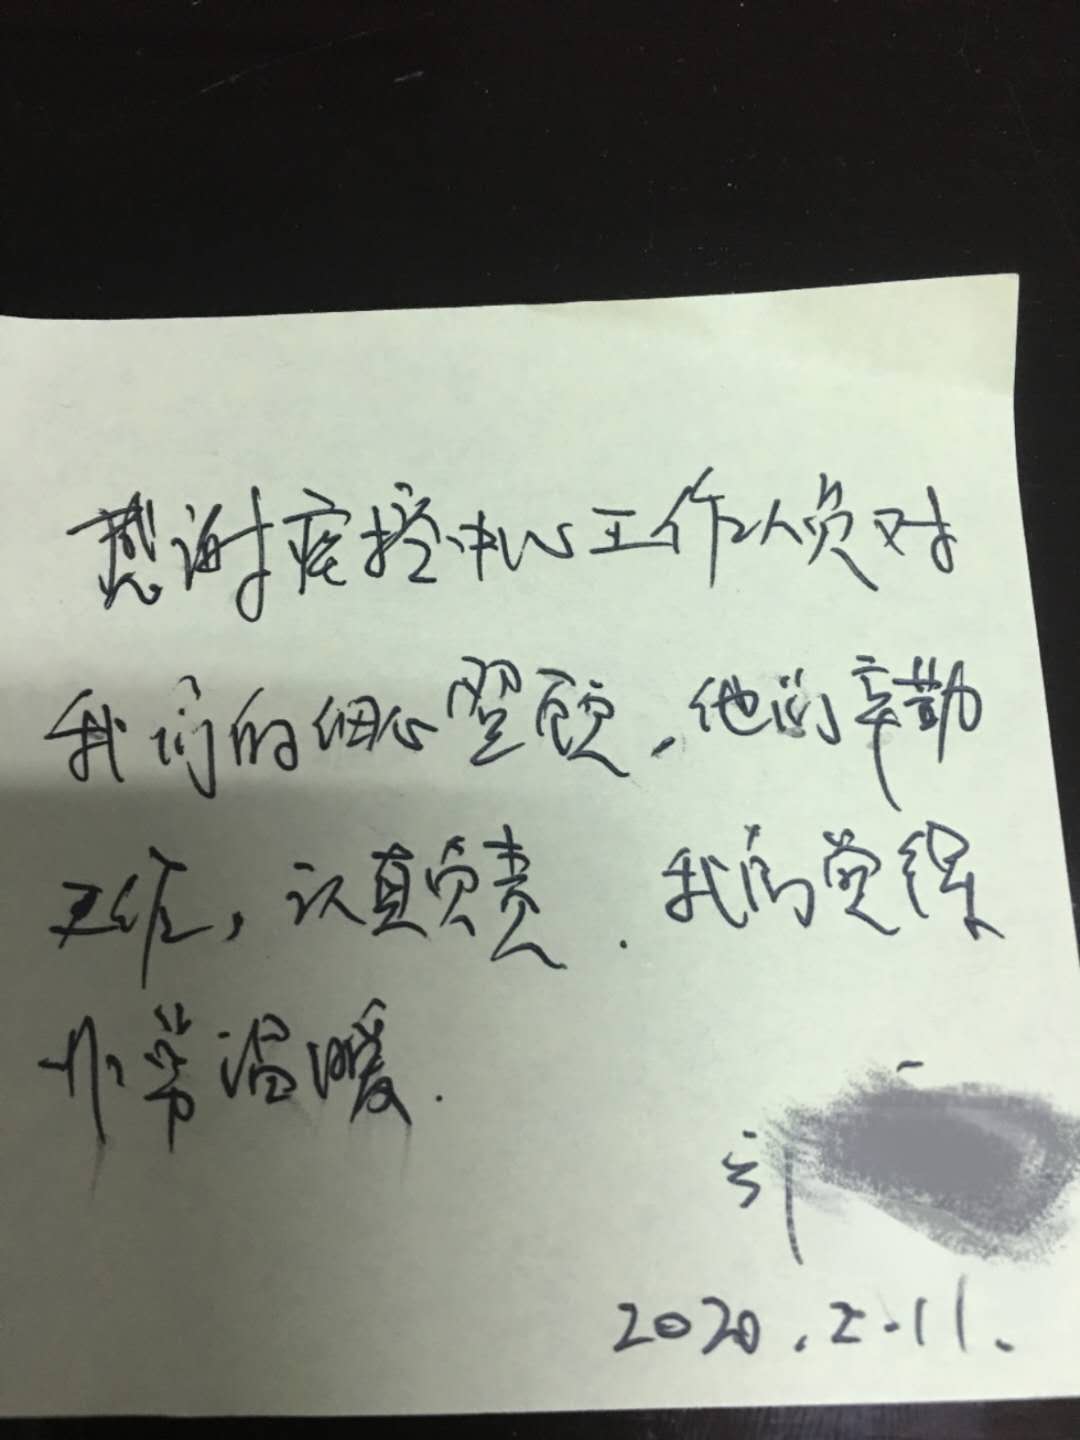 感谢疾控中心工作人员对
我们的细心照顾，他们辛勤
工作，认真负责．我们觉得
非常温暖．
2020.2.11.